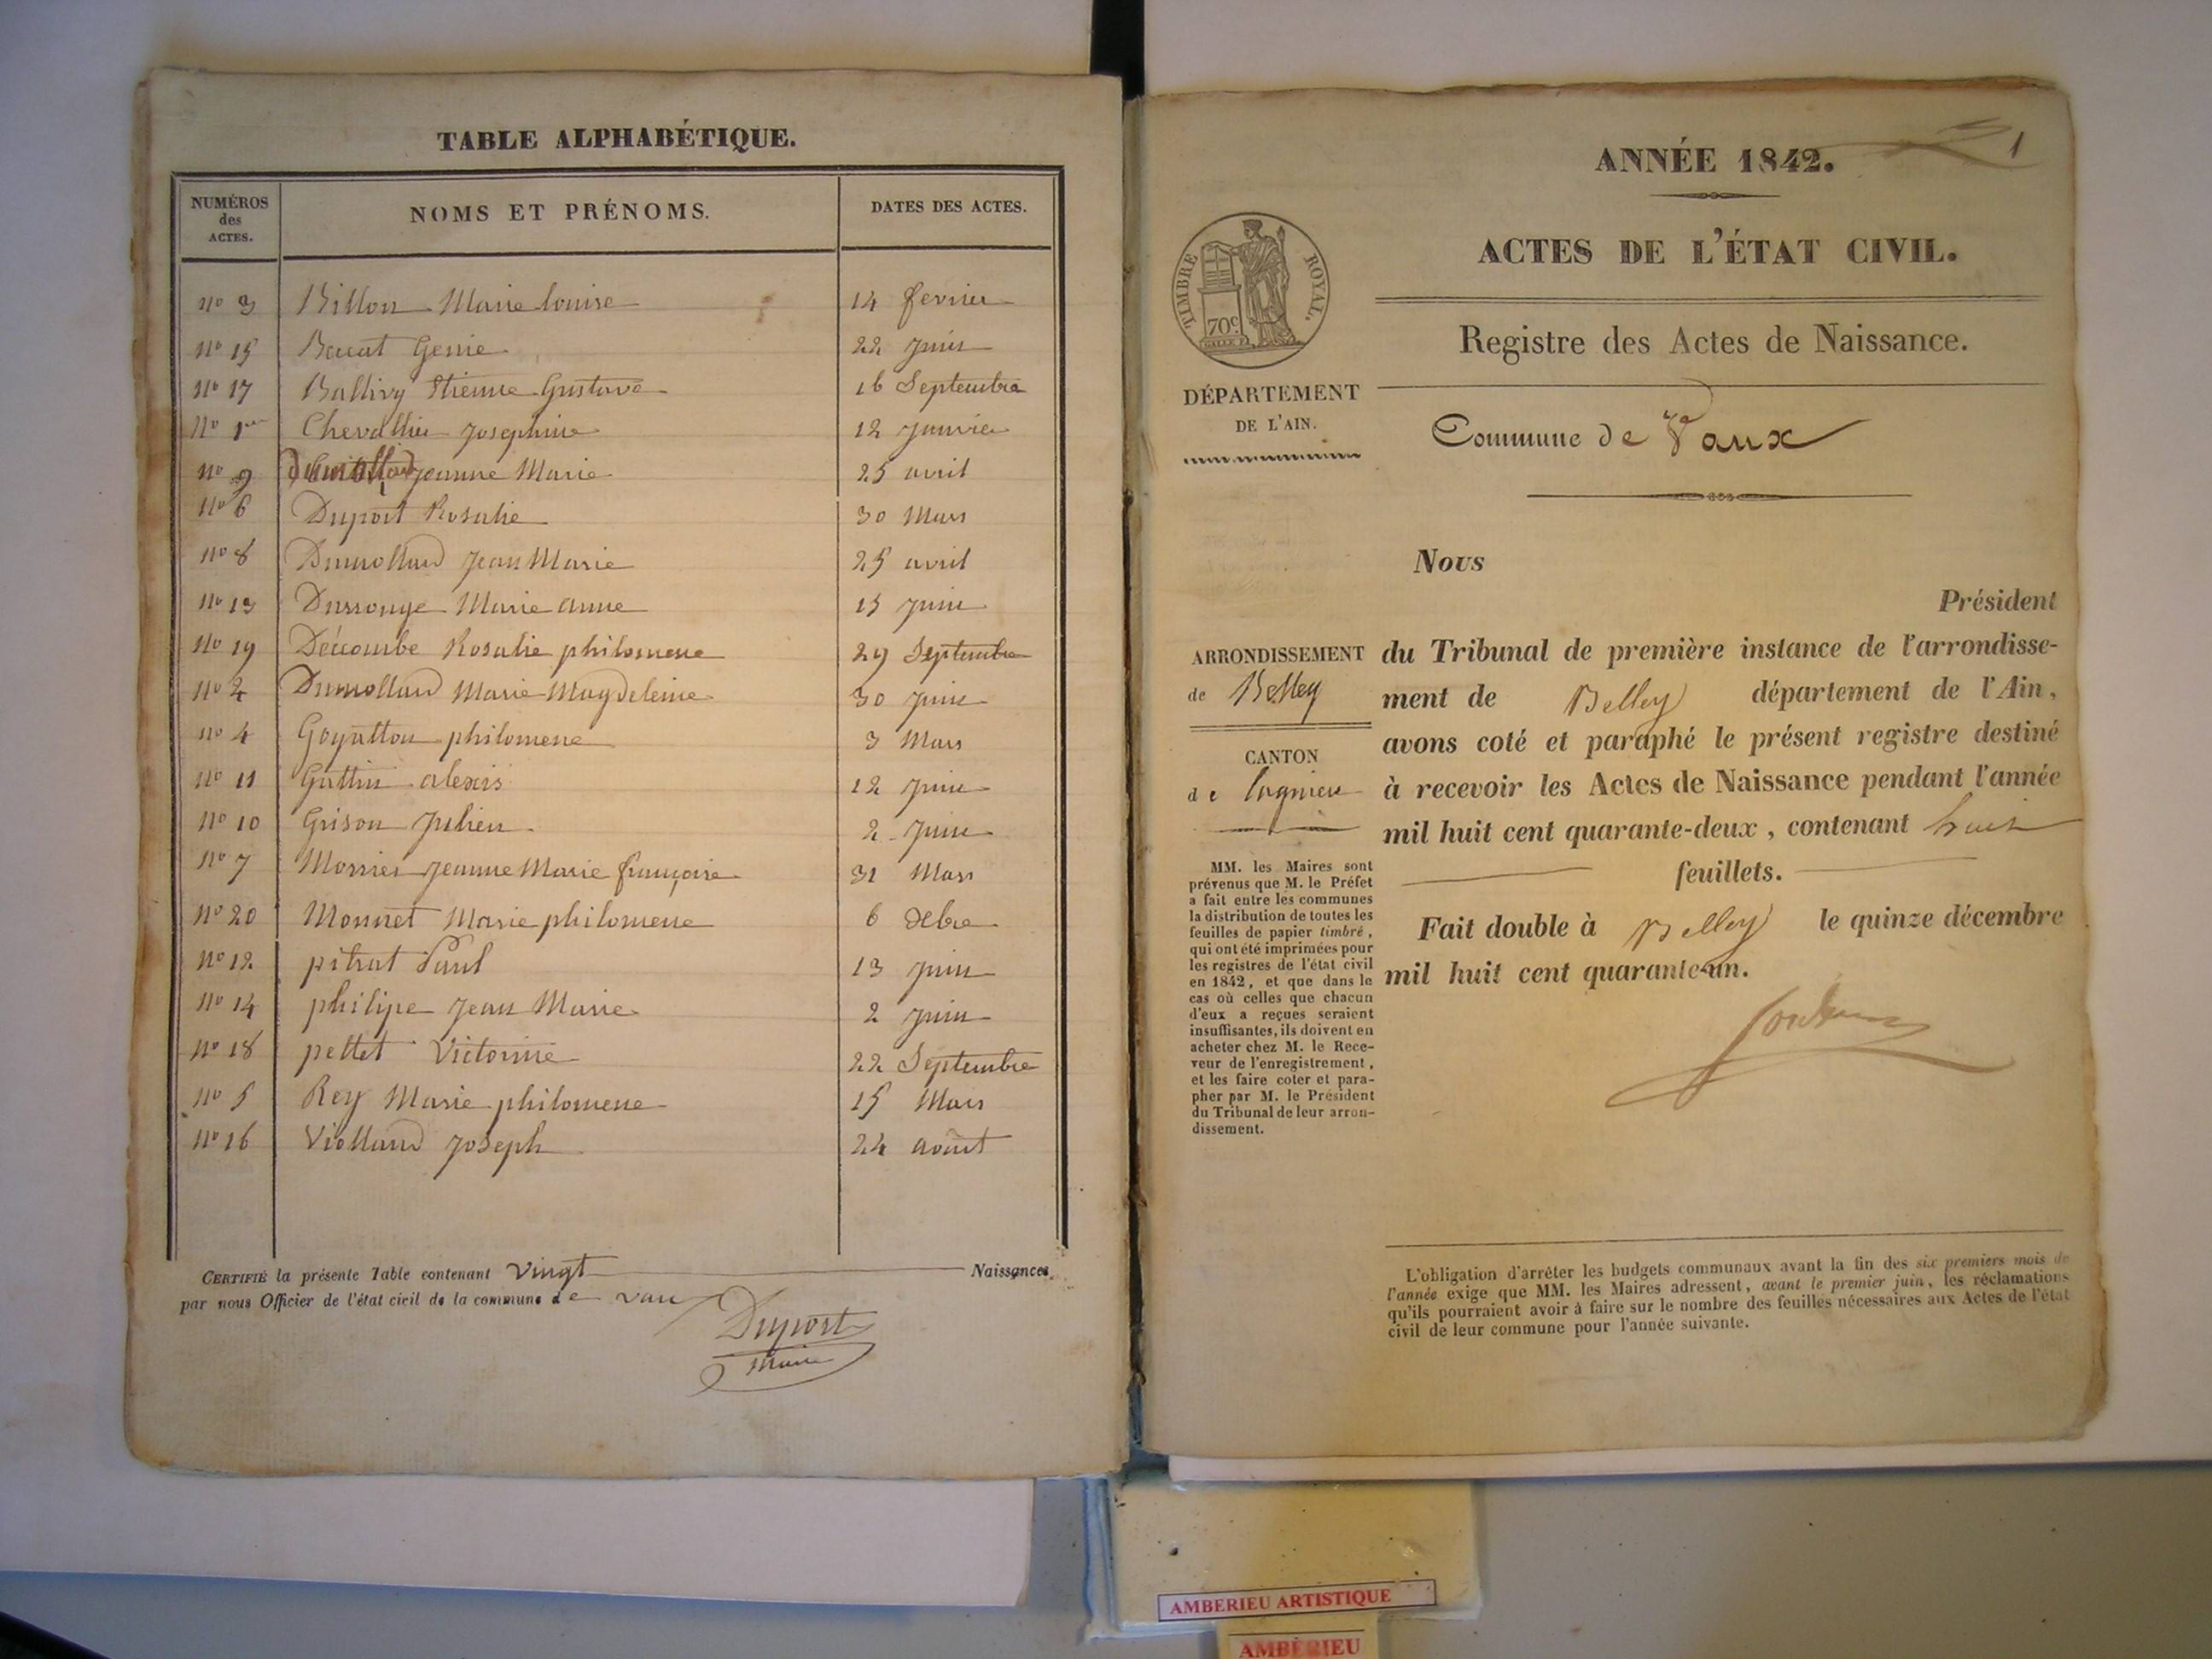 TABLE ALPHABÉTIQUE.
NUMÉROS des ACTES. NOMS ET PRÉNOMS. DATES DES ACTES.
no 3 Billon Marie louise 14 fevrier
no 15 Bacat Genie 22 juin
no 17 Ballivy Etienne Gustave 16 Septembre
no 1er Chevallier Josephine 12 janvier
no 9 Jeanne Marie 25 avril
no 6 Duport Rosalie 30 Mars
no 8 Dumollard Jean Marie 25 avril
no 13 Durrouge Marie anne 15 juin
no 19 Décombe Rosalie philomene 29 Septembre
no 2 Dumollard Marie Magdeleine 30 juin
no 4 Goyatton philomene 3 Mars
no 11 Guttin alexis 12 juin
no 10 Grison Julien 2 juin
no 7 Morrier Jeanne Marie françoise 31 Mars
no 20 Monnet Marie philomene 6 Xbre
no 12 pitrat Paul 13 juin
no 14 philipe Jean Marie 2 juin
no 18 pettet Victorine 22 Septembre
no 5 Rey Marie philomene 15 Mars
no 16 Viollard Joseph 24 aout
CERTIFIÉ la présente Table contenant vingt Naissances
par nous Officier de l'état civil de la commune de vaux
Duport
Maire
1
ANNÉE 1842.
ACTES DE L'ÉTAT CIVIL.
TIMBRE ROYAL.
70c
Registre des Actes de Naissance.
DÉPARTEMENT
DE L'AIN.
Commune de Vaux
Nous
Président
ARRONDISSEMENT
de Belley
CANTON
de Lagnieu
du Tribunal de première instance de l'arrondisse-
ment de Belley département de l'Ain,
avons coté et paraphé le présent registre destiné
à recevoir les Actes de Naissance pendant l'année
mil huit cent quarante-deux, contenant huit
feuillets.
Fait double à Belley le quinze décembre
mil huit cent quarante-un.
MM. les Maires sont
prévenus que M. le Préfet
a fait entre les communes
la distribution de toutes les
feuilles de papier timbré,
qui ont été imprimées pour
les registres de l'état civil
en 1842, et que dans le
cas où celles que chacun
d'eux a reçues seraient
insuffisantes, ils doivent en
acheter chez M. le Rece-
veur de l'enregistrement,
et les faire coter et para-
pher par M. le Président
du Tribunal de leur arron-
dissement.
L'obligation d'arrêter les budgets communaux avant la fin des six premiers mois de
l'année exige que MM. les Maires adressent, avant le premier juin, les réclamations
qu'ils pourraient avoir à faire sur le nombre des feuilles nécessaires aux Actes de l'état
civil de leur commune pour l'année suivante.
AMBERIEU ARTISTIQUE
AMBÉRIEU